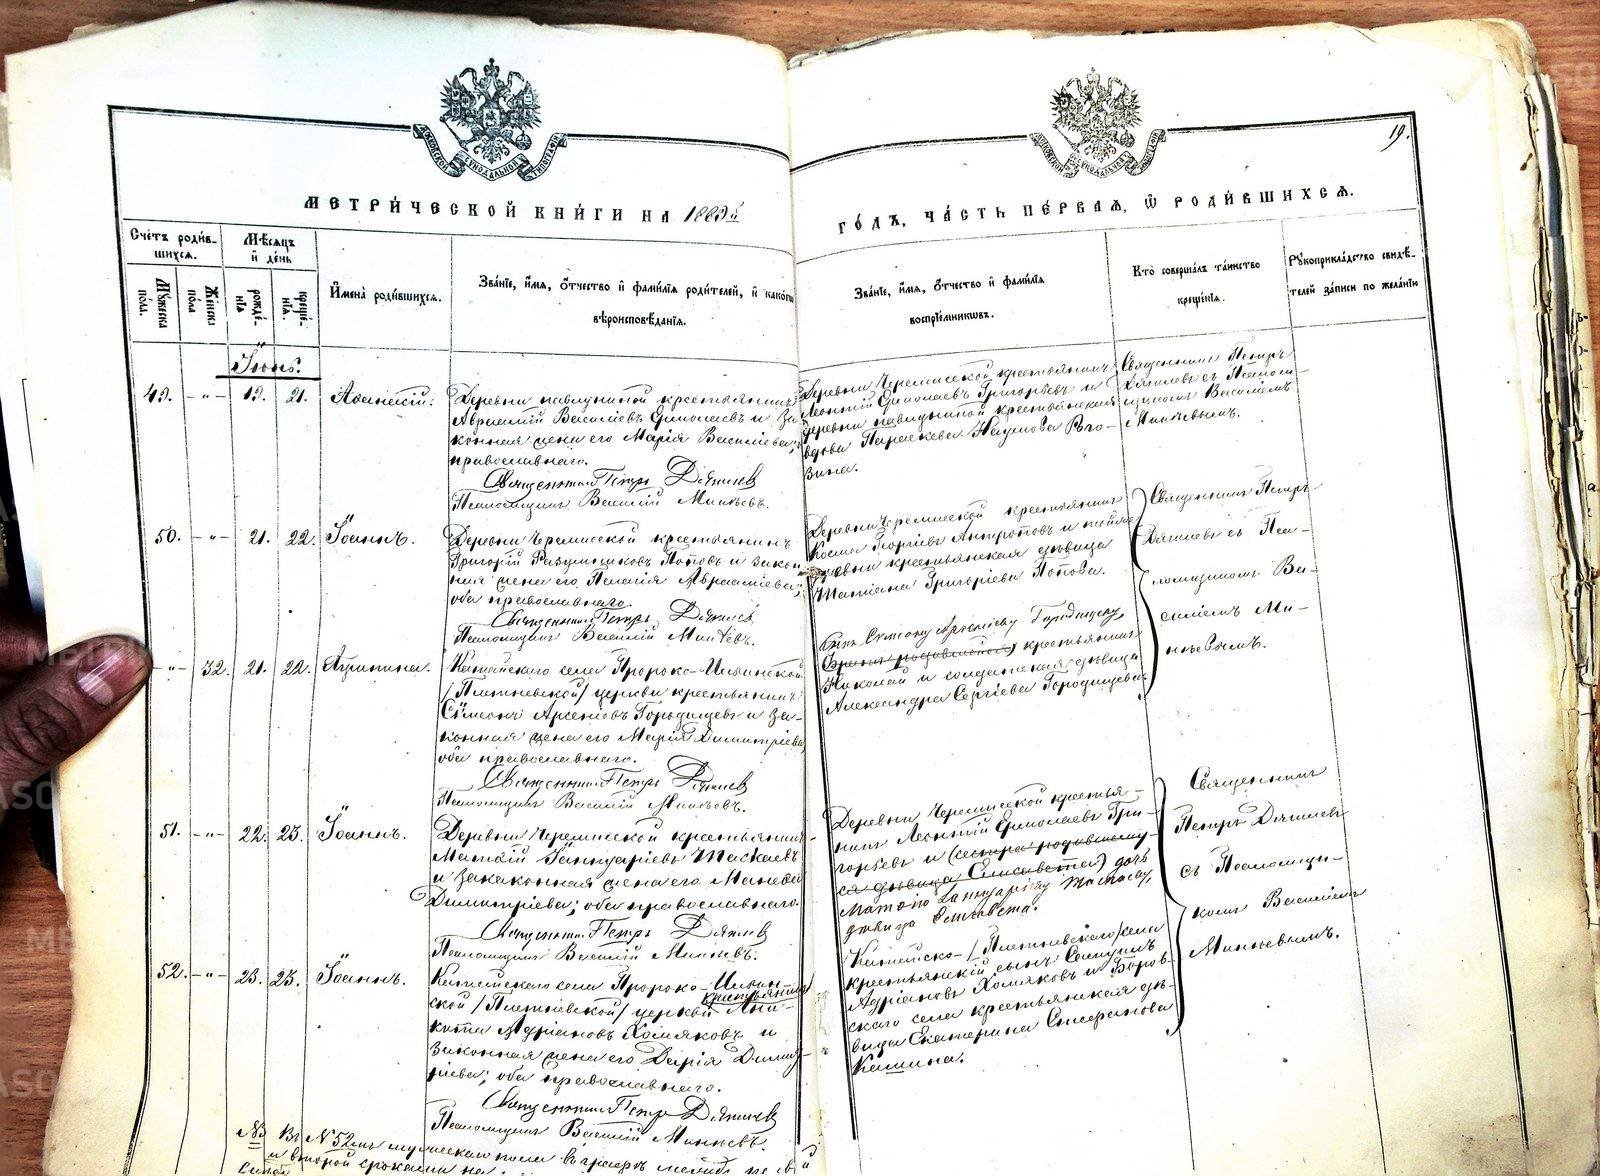 МОСКОВСКОЙ СѴНОДАЛЬНОЙ ТИПОГРАФІИ
МОСКОВСКОЙ СѴНОДАЛЬНОЙ ТИПОГРАФІИ
19.
МЕТРИ́ЧЕСКОЙ КНИ́ГИ НА 1889й
ГО́ДЪ, ЧА́СТЬ ПЕ́РВАЯ, Ѽ РОДИ́ВШИХСЯ.
Сче́тъ роди́в-
шихся.
Мѣ́сяцъ
и҆ де́нь
Му́жеска
по́ла.
Же́нска
по́ла
рожде́-
нїѧ
креще́-
нїѧ.
И҆мена̀ роди́вшихся.
Зва́нїе, и҆́мя, ѻ҆́тчество и҆ фами́лїя роди́телей, и҆ како́гѡ
вѣроисповѣ́данїя.
Зва́нїе, и҆́мя, ѻ҆́тчество и҆ фами́лїя
воспрїе́мникѡвъ.
Кто̀ соверша́лъ та́инство
креще́нїя.
Рꙋкоприкла́дство свидѣ́-
телей за́писи по жела́нїю
Іюнь.
49. -"- 19. 21. Аѳанасій.
Деревни крестьянинъ
Авраамій Василіевъ Ермолаевъ и за-
конная жена его Марія Василіева,
православнаго.
Священникъ Петръ Дягилев
Псаломщикъ Василій Миньевъ.
Деревни Черемисской крестьянинъ
Леонтій Ермолаевъ Григорьевъ и
деревни крестьянская
вдова Параскева Наумова Рого-
зина.
Священникъ Петръ
Дягилевъ съ Псалом-
щикомъ Василіемъ
Миньевымъ.
50. -"- 21. 22. Іоаннъ.
Деревни Черемисской крестьянинъ
Григорій Поповъ и закон-
ная жена его Пелагія Авраамієва,
оба православнаго.
Священникъ Петръ Дягилев
Псаломщикъ Василій Миньевъ.
Деревни Черемисской крестьянинъ
Косма Георгіевъ Антроповъ и той же
деревни крестьянская дѣвица
Татіана Григоріева Попова.
Священникъ Петръ
Дягилевъ съ Пса-
ломщикомъ Ва-
силіемъ Ми-
ньевымъ.
-"- 32. 21. 22. Агрипина.
Катайскаго села Пророко-Ильинской
/Плетневской/ церкви крестьянинъ
Сѵмеонъ Арсеніевъ Городищевъ и за-
конная жена его Марія Димитріева,
оба православнаго.
Священникъ Петръ Дягилев
Псаломщикъ Василій Миньевъ.
крестьянинъ
Николай и солдатская дѣвица
Александра Сергіева Городищева.
51. -"- 22. 23. Іоаннъ.
Деревни Черемисской крестьянинъ
Матѳій Іаннуаріевъ Таскаевъ
и законная жена его
Димитріева; оба православнаго.
Священникъ Петръ Дягилев
Псаломщикъ Василій Миньевъ.
Деревни Черемисской крестья-
нинъ Леонтій Ермолаевъ Гри-
горьевъ и (сестра родившему-
ся дѣвица Елисавета) дочь
Матѳія Іаннуаріева Таскаева,
дѣвица Елисавета.
Священникъ
Петръ Дягилевъ
съ Псаломщи-
комъ Василіемъ
Миньевымъ.
52. -"- 23. 23. Іоаннъ.
Катайскаго села Пророко-Ильин-
ской /Плетневской/ церкви крестьянинъ Ани-
кита Адріановъ Хомяковъ и
законная жена его Дарія Димит-
ріева; оба православнаго.
Священникъ Петръ Дягилев
Псаломщикъ Василій Миньевъ.
Катайско-/Плетневскаго/ села
крестьянскій сынъ
Адріановъ Хомяковъ и Боров-
скаго села крестьянская дѣ-
вица Екатерина Стефанова
Кашина.
№ 52